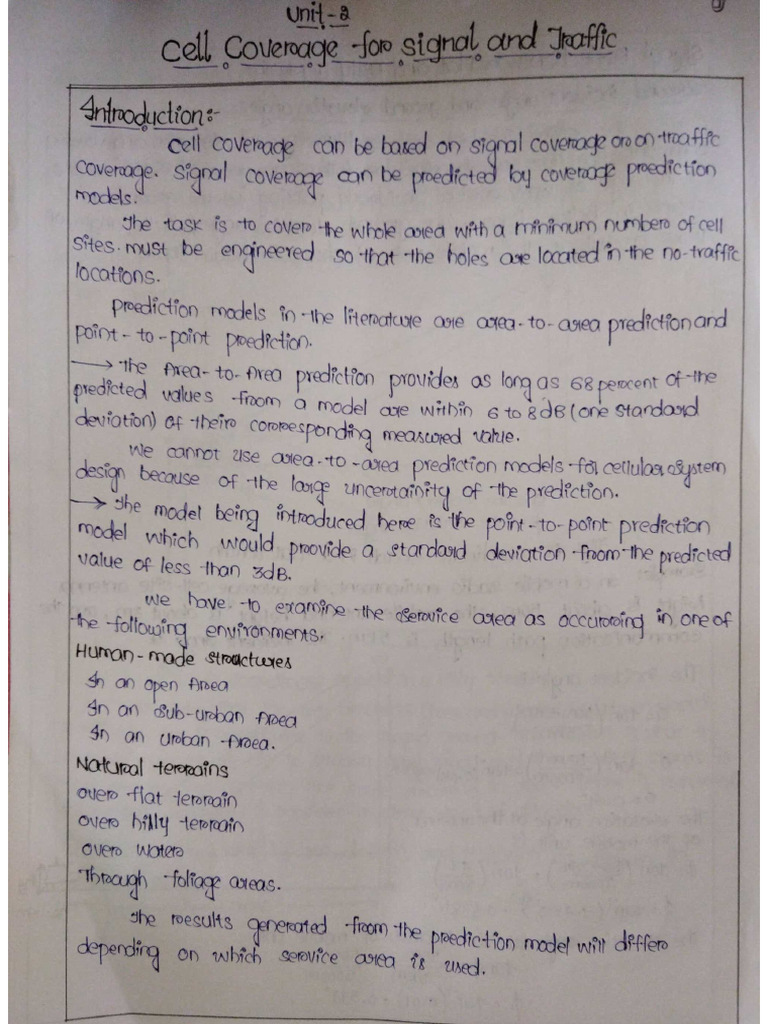 Unit-2
Cell Coverage for Signal and Traffic.
Introduction:-
Cell coverage can be based on signal coverage or on traffic
coverage. Signal coverage can be predicted by coverage prediction
models.
The task is to cover the whole area with a minimum number of cell
sites. must be engineered so that the holes are located in the no-traffic
locations.
prediction models in the literature are area-to-area prediction and
point-to-point prediction.
→ The Area-to-Area prediction provides as long as 68 percent of the
predicted values from a model are within 6 to 8 dB (one standard
deviation) of their corresponding measured value.
We cannot use area-to-area prediction models for cellular system
design because of the large uncertainity of the prediction.
→ The model being introduced here is the point-to-point prediction
model which would provide a standard deviation from the predicted
value of less than 3dB.
We have to examine the service area as occurring in one of
the following environments.
Human-made structures
In an open Area
In an Sub-urban Area
In an urban Area.
Natural terrains
over flat terrain
over hilly terrain
over water
Through foliage areas.
The results generated from the prediction model will differ
depending on which service area is used.